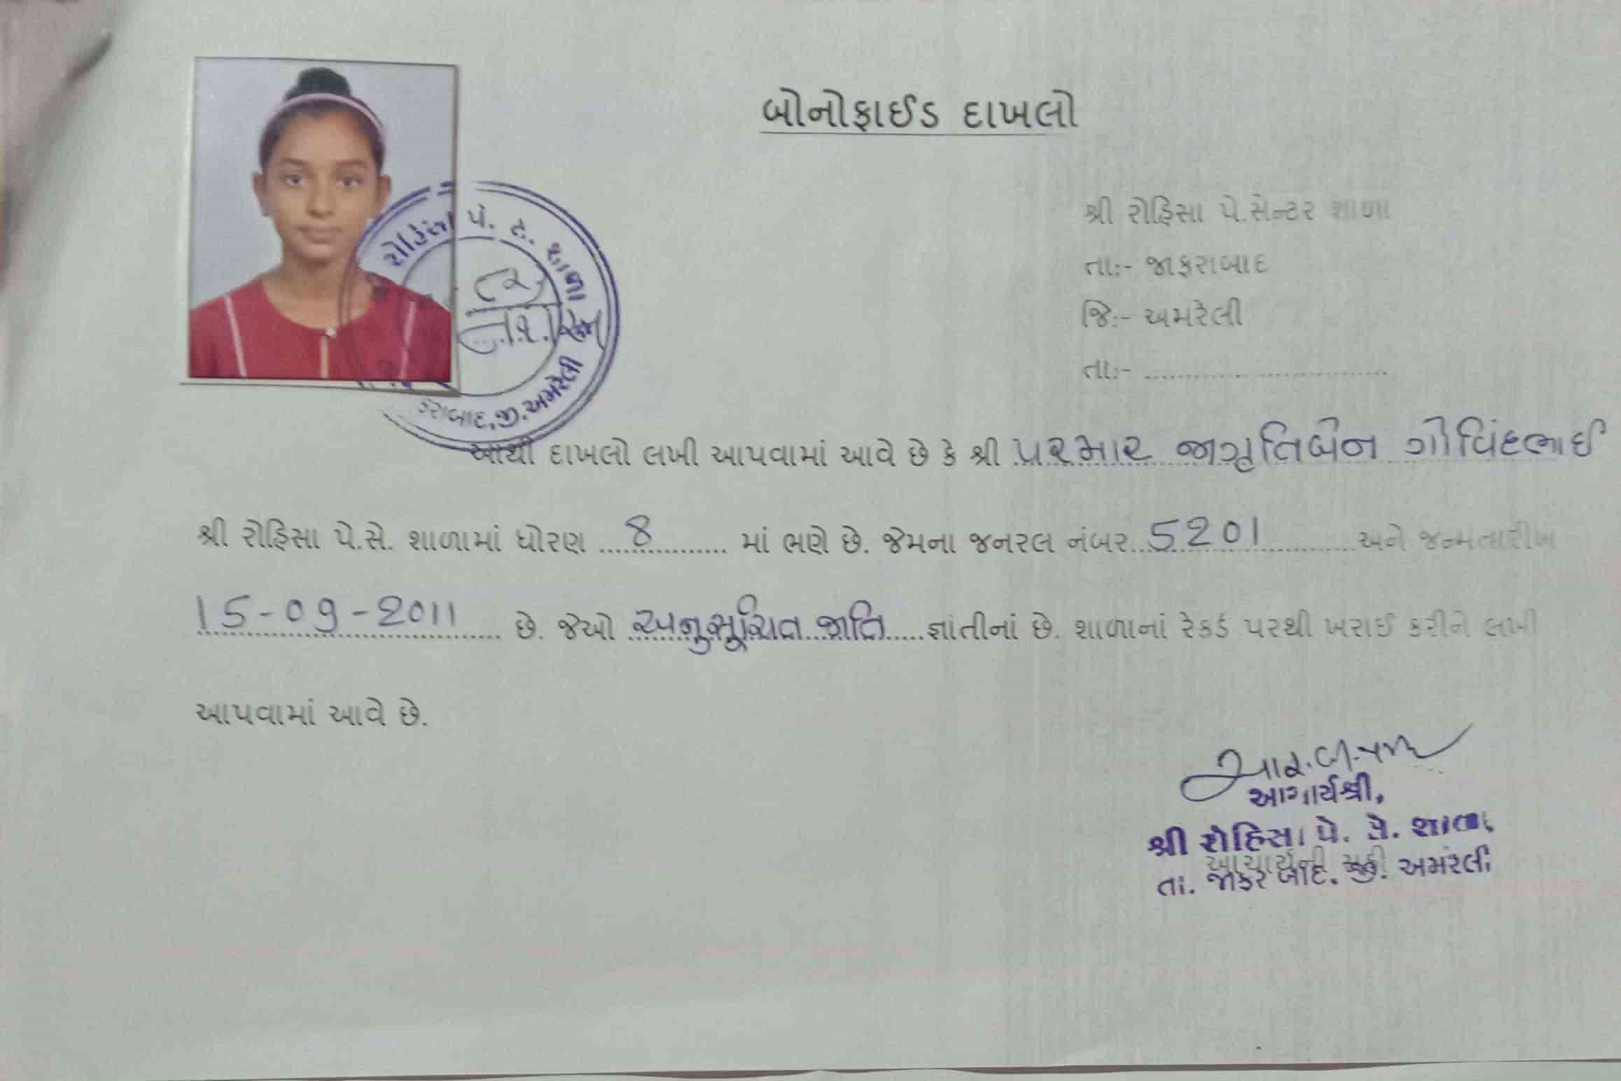 બોનોફાઈડ દાખલો
શ્રી રોહિસા પે.સેન્ટર શાળા
તાઃ- જાફરાબાદ
જિઃ- અમરેલી
તાઃ- ........................
રોહિસા પે. સે. શાળા
જી. અમરેલી
આથી દાખલો લખી આપવામાં આવે છે કે શ્રી પરમાર જાગૃતિબેન ગોવિંદભાઈ
શ્રી રોહિસા પે.સે. શાળામાં ધોરણ ...8... માં ભણે છે. જેમના જનરલ નંબર 5201 અને જન્મતારીખ
15-09-2011 છે. જેઓ અનુસૂચિત જાતિ જ્ઞાતીનાં છે. શાળાનાં રેકર્ડ પરથી ખરાઈ કરીને લખી
આપવામાં આવે છે.
આચાર્યશ્રી,
શ્રી રોહિસા પે. સે. શાળા
આચાર્યની સહી
તા. જાફરાબાદ. જી. અમરેલી